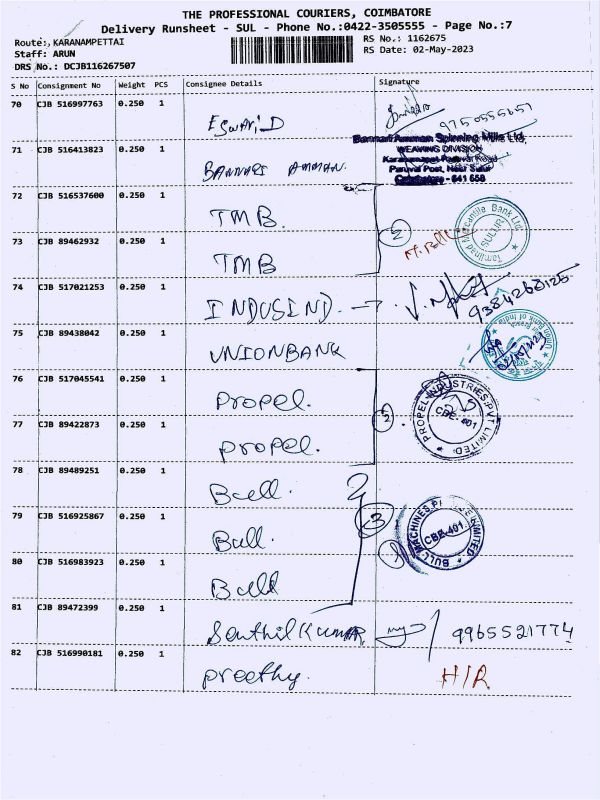 THE PROFESSIONAL COURIERS, COIMBATORE
Delivery Runsheet - SUL - Phone No.:0422-3505555 - Page No.:7
Route:, KARANAMPETTAI
RS No.: 1162675
Staff: ARUN
RS Date: 02-May-2023
DRS No.: DCJB116267507
S No Consignment No Weight PCS Consignee Details Signature
70 CJB 516997763 0.250 1 Eswari, D 9750555651
71 CJB 516413823 0.250 1 BANNARI AMMAN.
Bannari Amman Spinning Mills Ltd,
WEAVING DIVISION
Karanampet Paruvai Road
Paruvai Post, Near Sulur
Coimbatore - 641 658
72 CJB 516537600 0.250 1 TMB. 2
Tamilnad Mercantile Bank Ltd. SULUR
73 CJB 89462932 0.250 1 TMB
74 CJB 517021253 0.250 1 INDUSIND. → 9384268125
75 CJB 89438042 0.250 1 UNIONBANK
Union Bank of India
76 CJB 517045541 0.250 1 Propel.
PROPEL INDUSTRIES PVT LIMITED CBE-401
77 CJB 89422873 0.250 1 Propel. 2
78 CJB 89489251 0.250 1 Bull.
79 CJB 516925867 0.250 1 Bull. 3
BULL MACHINES PRIVATE LIMITED CBE-401.
80 CJB 516983923 0.250 1 Bull
81 CJB 89472399 0.250 1 Senthil Kumar 9965521774
82 CJB 516990181 0.250 1 preethy. H/R